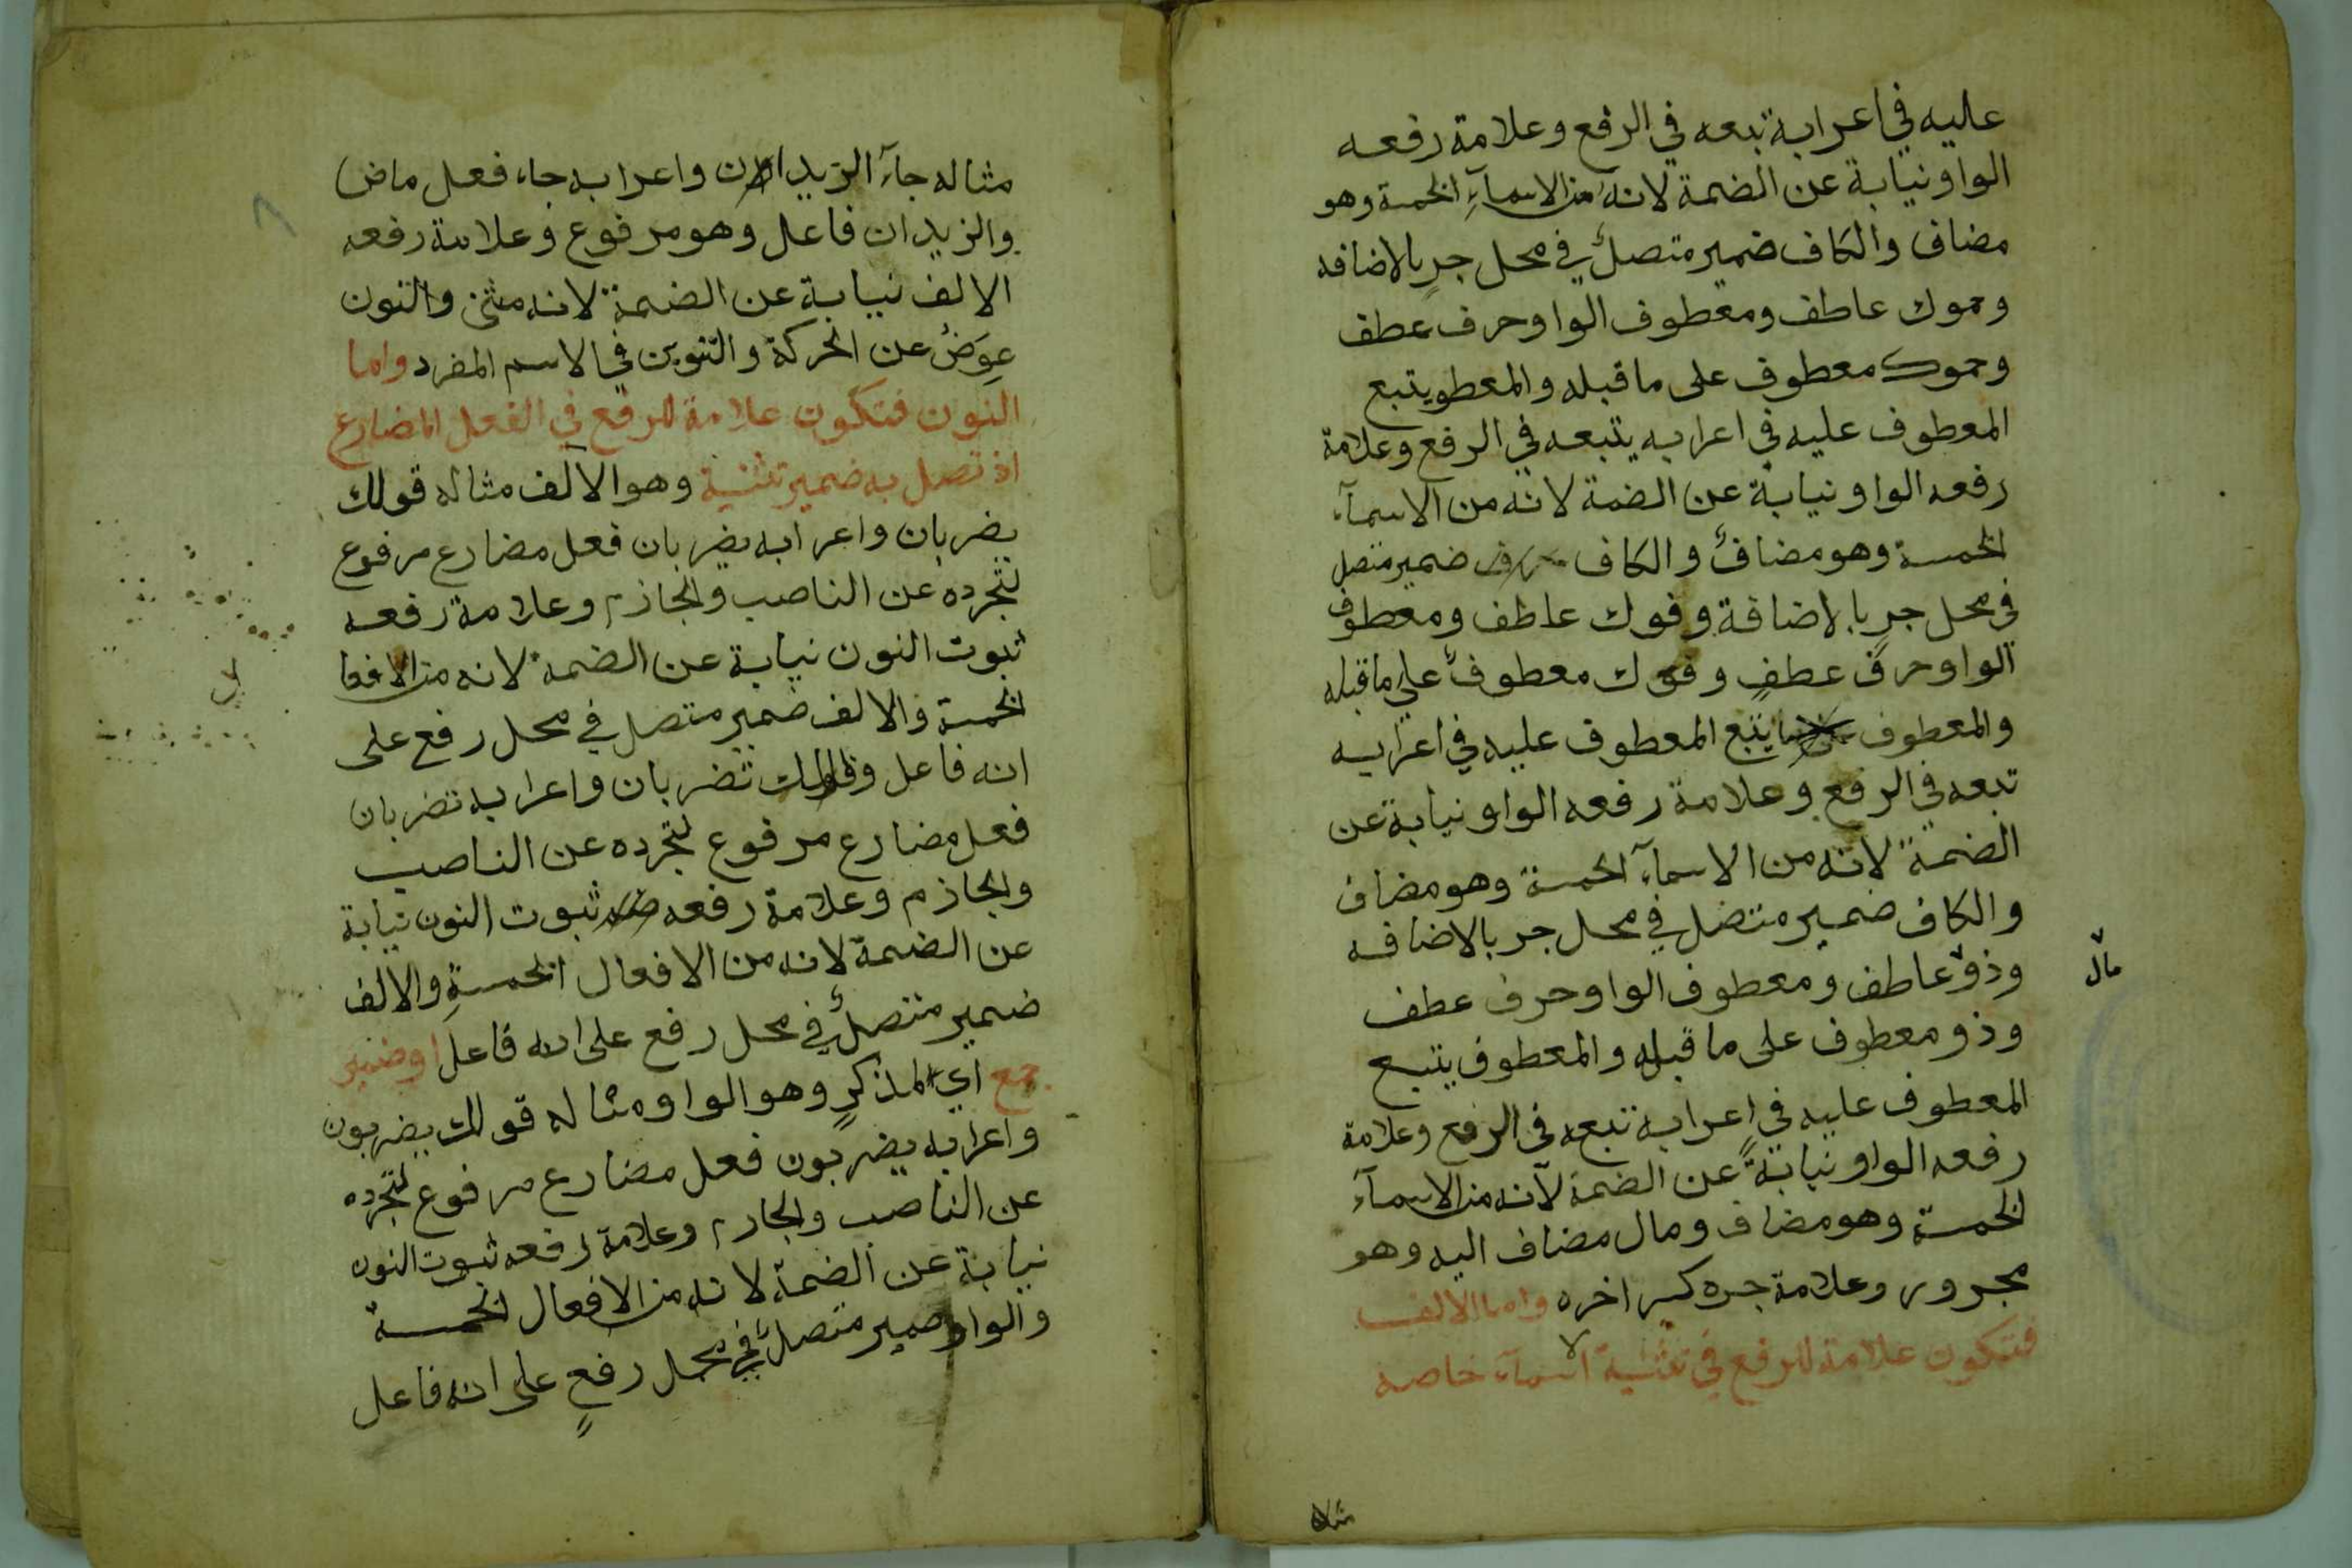 عليه في اعرابه تبعه في الرفع وعلامة رفعه
الواو نيابة عن الضمة لانه من الاسمآء الخمسة وهو
مضاف والكاف ضمير متصل في محل جر بالاضافه
وحموك عاطف ومعطوف الواو حرف عطف
وحموك معطوف على ما قبله والمعطو يتبع
المعطوف عليه في اعرابه يتبعه في الرفع وعلامة
رفعه الواو نيابة عن الضمة لانه من الاسمآء
الخمسة وهو مضاف والكاف ضمير متصل
في محل جر بالاضافة وفوك عاطف ومعطوف
الواو حرف عطف وفوك معطوف على ما قبله
والمعطوف يتبع المعطوف عليه في اعرابه
تبعه في الرفع وعلامة رفعه الواو نيابة عن
الضمة لانه من الاسمآء الخمسة وهو مضاف
والكاف ضمير متصل في محل جر بالاضافه
وذو عاطف ومعطوف الواو حرف عطف
مال
وذو معطوف على ما قبله والمعطوف يتبع
المعطوف عليه في اعرابه تبعه في الرفع وعلامة
رفعه الواو نيابةً عن الضمة لانه من الاسمآء
الخمسة وهو مضاف ومال مضاف اليه وهو
مجرور وعلامة جره كسر اخره واما الالف
فتكون علامة للرفع في تثنية الاسمآء خاصه
مثاله
مثاله جآء الزيدان واعرابه جاء فعل ماض
والزيدان فاعل وهو مرفوع وعلامة رفعه
الالف نيابة عن الضمة لانه مثنى والنون
عِوَضٌ عن الحركة والتنوين في الاسم المفرد واما
النون فتكون علامة للرفع في الفعل المضارع
اذ تصل به ضمير تثنية وهو الالف مثاله قولك
يضربان واعرابه يضربان فعل مضارع مرفوع
لتجرده عن الناصب والجازم وعلامة رفعه
ثبوت النون نيابة عن الضمه لانه من الافعا
ل
الخمسة والالف ضمير متصل في محل رفع على
انه فاعل وقولك تضربان واعرابه تضربان
فعل مضارع مرفوع لتجرده عن الناصب
والجازم وعلامة رفعه ثبوت النون نيابة
عن الضمة لانه من الافعال الخمسةِ والالف
ضمير متصل في محل رفع على انه فاعل او ضمير
جمع اي لمذكرٍ وهو الواو ومثاله قولك يضربون
واعرابه يضربون فعل مضارع مرفوع لتجرده
عن الناصب والجازم وعلامة رفعه ثبوت النون
نيابة عن الضمة لانه من الافعال الخمسة
والواو ضمير متصل في محل رفعٍ على انه فاعل